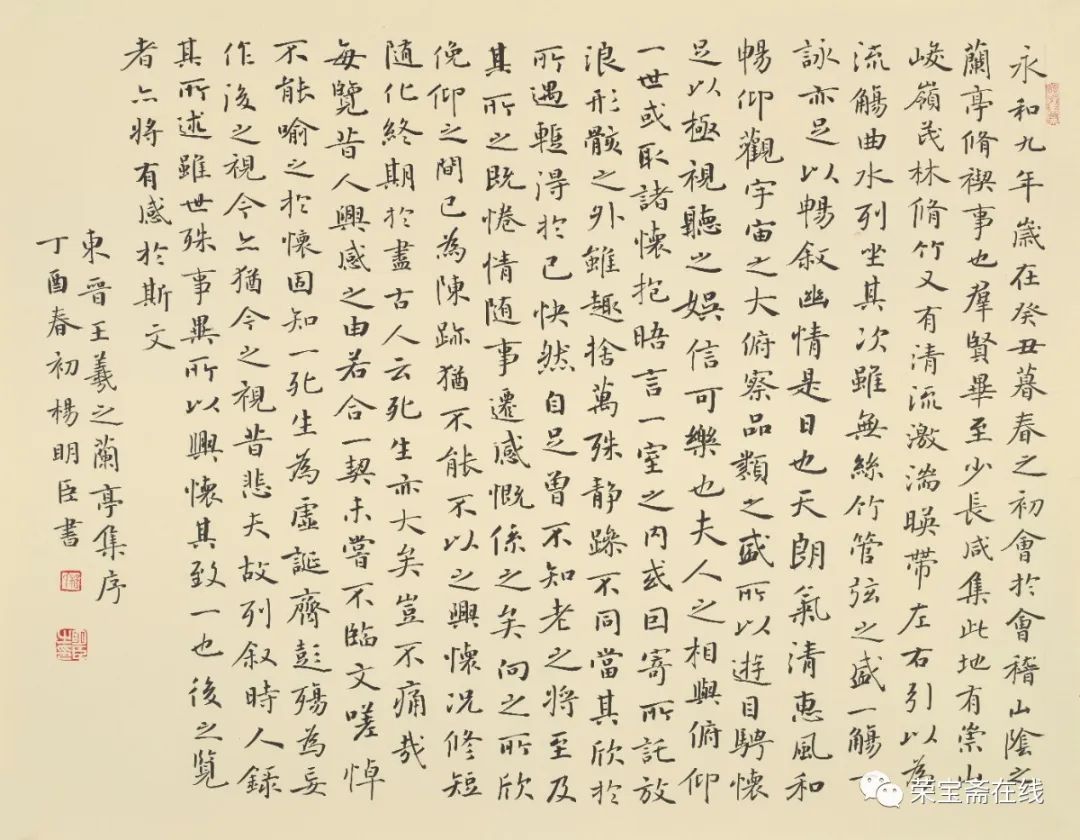 永和九年歲在癸丑暮春之初會於會稽山陰之
蘭亭脩禊事也羣賢畢至少長咸集此地有崇山
峻嶺茂林脩竹又有清流激湍暎帶左右引以為
流觴曲水列坐其次雖無絲竹管弦之盛一觴一
詠亦足以暢叙幽情是日也天朗氣清惠風和
暢仰觀宇宙之大俯察品類之盛所以遊目騁懷
足以極視聽之娛信可樂也夫人之相與俯仰
一世或取諸懷抱晤言一室之内或因寄所託放
浪形骸之外雖趣捨萬殊静躁不同當其欣於
所遇暫得於己快然自足曾不知老之將至及
其所之既惓情随事遷感慨係之矣向之所欣
俛仰之間已為陳跡猶不能不以之興懷況修短
随化終期於盡古人云死生亦大矣豈不痛哉
每覽昔人興感之由若合一契未嘗不臨文嗟悼
不能喻之於懷固知一死生為虛誕齊彭殤為妄
作後之視今亦猶今之視昔悲夫故列叙時人錄
其所述雖世殊事異所以興懷其致一也後之覽
者亦將有感於斯文
東晉王羲之蘭亭集序
丁酉春初楊明臣書
荣宝斋在线